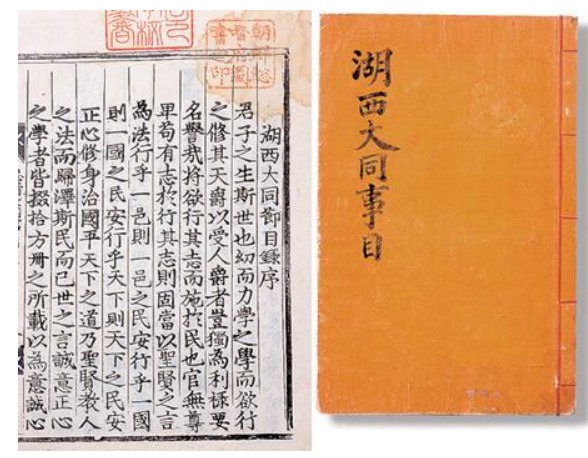 湖西大同節目錄序
君子之生斯世也幼而力學之學而欲行
之修其天爵以受人爵者豈獨為利祿要
名譽哉將欲行其志而施於民也官無尊
卑苟有志於行其志則固當以聖賢之言
為法行乎一邑則一邑之民安行乎一國
則一國之民安行乎天下則天下之民安
正心修身治國平天下之道乃聖賢教人
之法而歸澤斯民而已世之言誠意正心
之學者皆掇拾方冊之所載以為意誠心
湖西大同事目